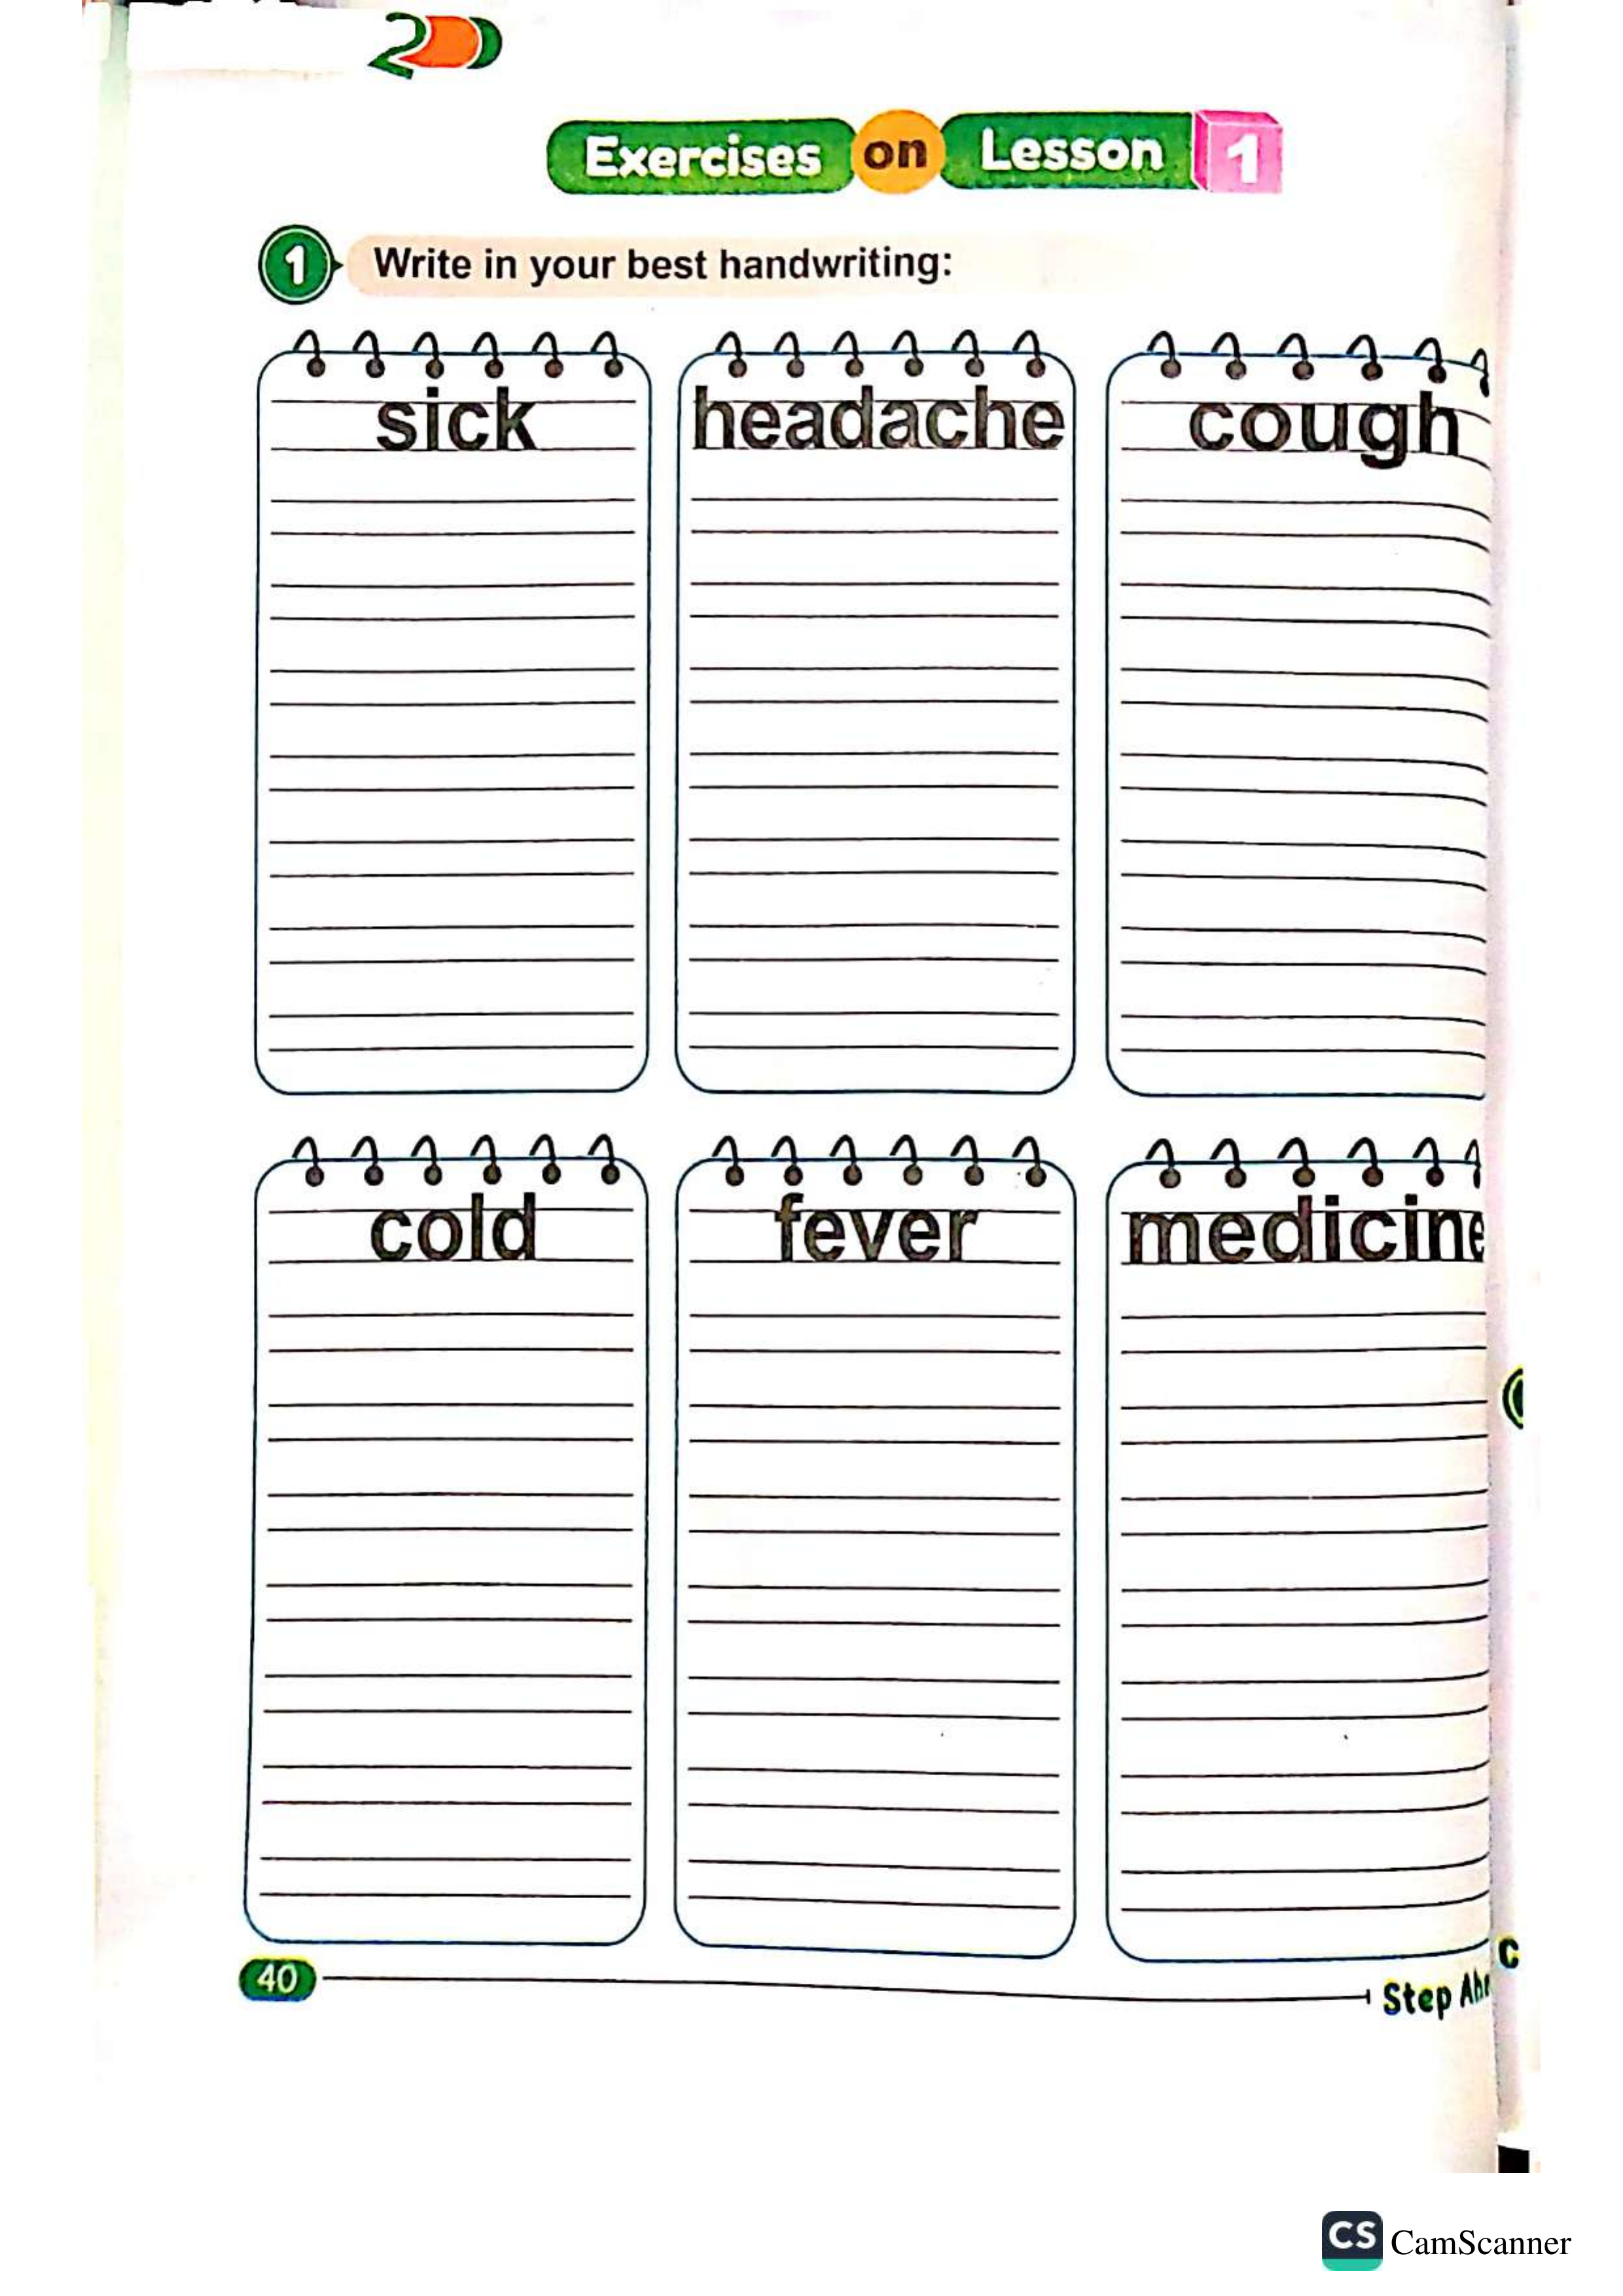 Exercises on Lesson 1
1 Write in your best handwriting:
sick headache cough
cold fever medicine
40
Step
CS CamScanner